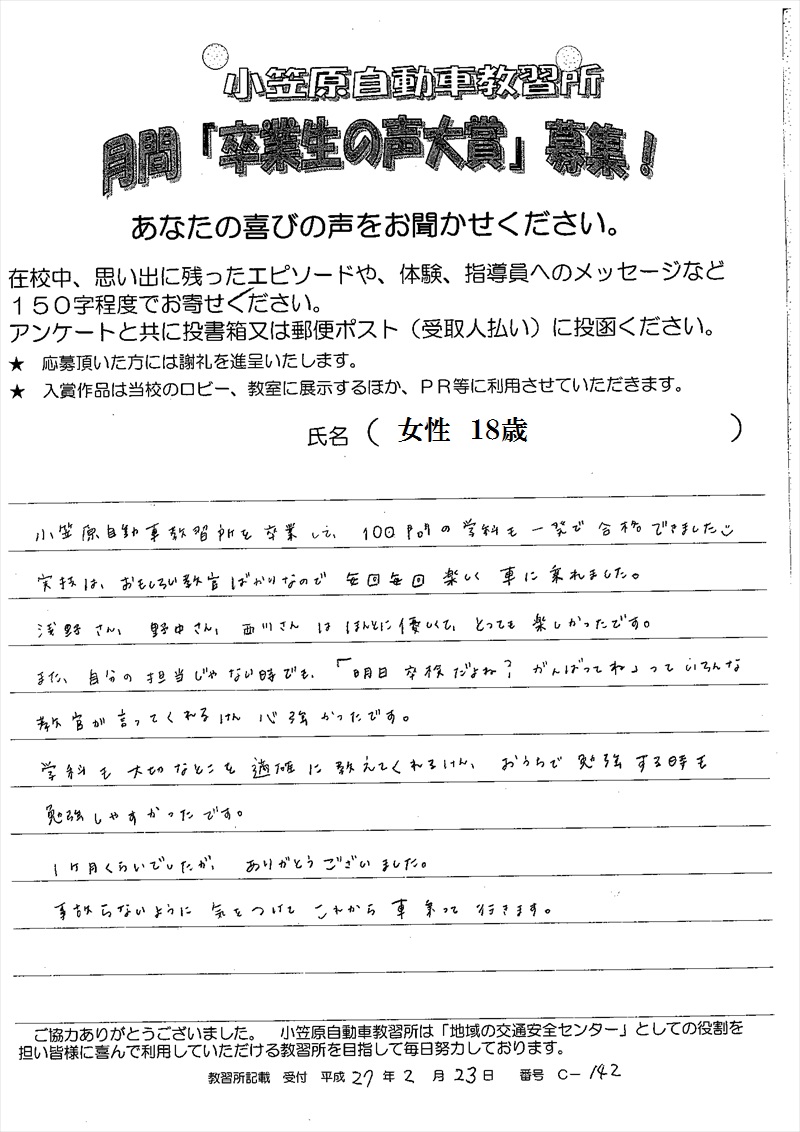 小笠原自動車教習所
月間「卒業生の声大賞」募集!
あなたの喜びの声をお聞かせください。
在校中、思い出に残ったエピソードや、体験、指導員へのメッセージなど
150字程度でお寄せください。
アンケートと共に投書箱又は郵便ポスト(受取人払い)に投函ください。
★ 応募頂いた方には謝礼を進呈いたします。
★ 入賞作品は当校のロビー、教室に展示するほか、PR等に利用させていただきます。
氏名( 女性 18歳 )
小笠原自動車教習所を卒業して、100問の学科も一発で合格できました
実技は、おもしろい教官ばかりなので毎回毎回楽しく車に乗れました。
浅野さん、野中さん、西川さんはほんとに優しくて、とっても楽しかったです。
また、自分の担当じゃない時でも、「明日卒検だよね?がんばってね」っていろんな
教官が言ってくれるけん心強かったです。
学科も大切なとこを適確に教えてくれるけん、おうちで勉強する時も
勉強しやすかったです。
1ヶ月くらいでしたが、ありがとうございました。
事故らないように気をつけてこれから車乗って行きます。
ご協力ありがとうございました。 小笠原自動車教習所は「地域の交通安全センター」としての役割を
担い皆様に喜んで利用していただける教習所を目指して毎日努力しております。
教習所記載 受付 平成27年2月23日 番号 C-142